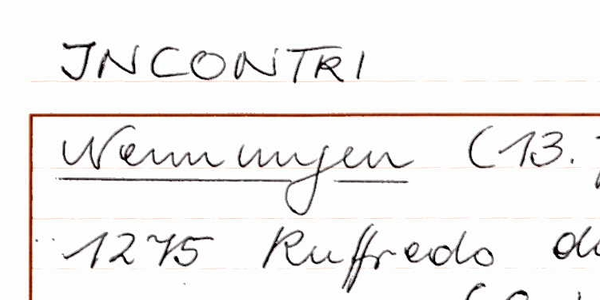 INCONTRI
Nennungen (13.
1275 Ruffredo